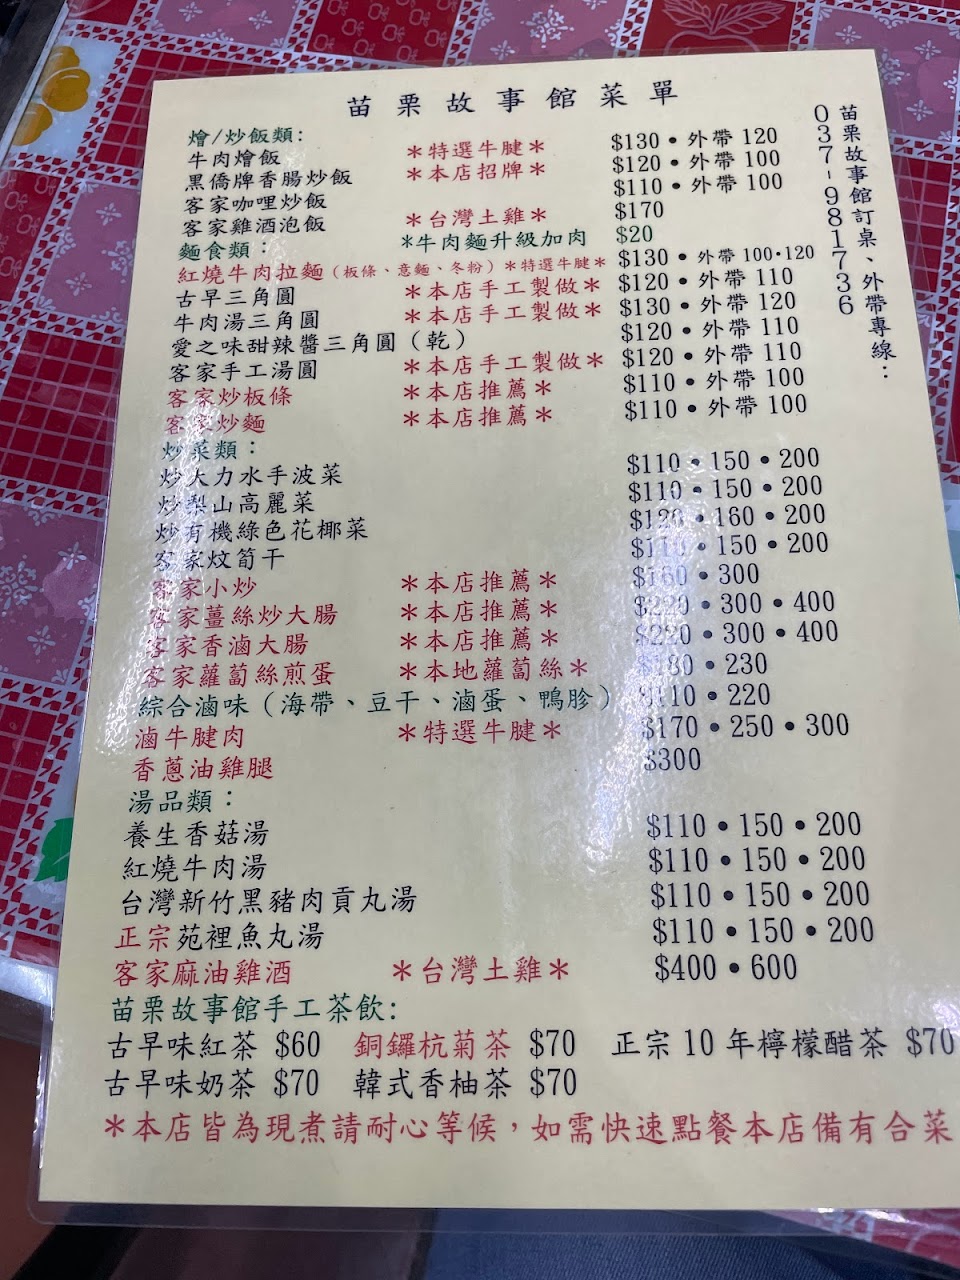 苗栗故事館菜單
苗栗故事館訂桌、外帶專線：
037-981736
燴/炒飯類:
牛肉燴飯 *特選牛腱* $130•外帶 120
黑僑牌香腸炒飯 *本店招牌* $120•外帶 100
客家咖哩炒飯 $110•外帶 100
客家雞酒泡飯 *台灣土雞* $170
麵食類： *牛肉麵升級加肉 $20
紅燒牛肉拉麵（板條、意麵、冬粉）*特選牛腱* $130•外帶 100•120
古早三角圓 *本店手工製做* $120•外帶 110
牛肉湯三角圓 *本店手工製做* $130•外帶 120
愛之味甜辣醬三角圓（乾） $120•外帶 110
客家手工湯圓 *本店手工製做* $120•外帶 110
客家炒板條 *本店推薦* $110•外帶 100
客家炒麵 *本店推薦* $110•外帶 100
炒菜類：
炒大力水手波菜 $110•150•200
炒梨山高麗菜 $110•150•200
炒有機綠色花椰菜 $120•160•200
客家炆筍干 $110•150•200
客家小炒 *本店推薦* $160•300
客家薑絲炒大腸 *本店推薦* $220•300•400
客家香滷大腸 *本店推薦* $220•300•400
客家蘿蔔絲煎蛋 *本地蘿蔔絲* $180•230
綜合滷味（海帶、豆干、滷蛋、鴨胗） $110•220
滷牛腱肉 *特選牛腱* $170•250•300
香蔥油雞腿 $300
湯品類：
養生香菇湯 $110•150•200
紅燒牛肉湯 $110•150•200
台灣新竹黑豬肉貢丸湯 $110•150•200
正宗苑裡魚丸湯 $110•150•200
客家麻油雞酒 *台灣土雞* $400•600
苗栗故事館手工茶飲:
古早味紅茶 $60 銅鑼杭菊茶 $70 正宗 10 年檸檬醋茶 $70
古早味奶茶 $70 韓式香柚茶 $70
*本店皆為現煮請耐心等候，如需快速點餐本店備有合菜